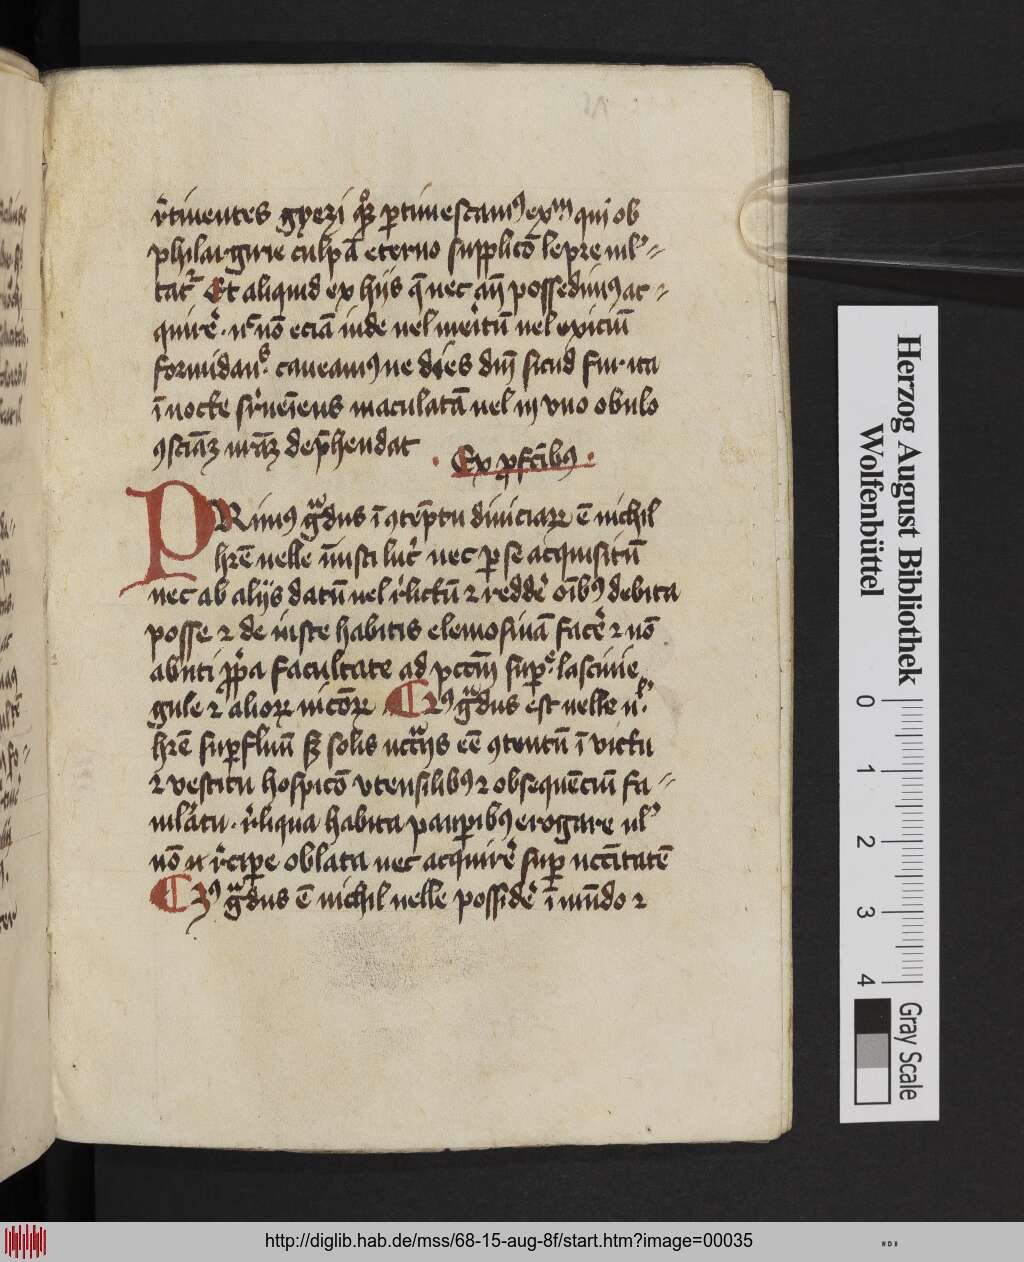 r̾tinentes gyezi qͦꝫ ꝑtimescamꝯ exm̄ qui ob
philargurie culpā eterno supplicō lepre ml̾⸗
tat̾ Et aliquid ex hijs q̄ nec an̄ possedimꝯ ac⸗
quire̾ · nō eciā inde uel merītū uel exiciū
formidans · caveamꝯ ne dies dn̄i sicud fur ita
ī nocte suēiens maculatā uel in vno obulo
ꝯsciāꝫ nrāꝫ dep̄hendat
· Ex ꝓfctībꝯ ·
PRimꝯ gͣdus ī ꝯtēptu diuiciaꝝ ē nichil
hr̄e nelle īiusti luc̾ nec ꝑ se acquisitū
nec ab alijs datū uel r̾lictū ⁊ redde̾ oībꝯ debita
posse ⁊ de iuste habitis elemosinā face̾ ⁊ nō
abuti ꝓp̄a facultate ad pcc̄m suꝑ lasciuie
gule ⁊ alioꝝ uicōꝝ · ¶ 2ꝯ gͣdus est nelle
hr̄e suꝑfluū sꝫ solis ncc̄ijs eē ꝯtentū ī victu
⁊ vestitu hospicō vtensilibꝯ ⁊ obsequēciū fa⸗
mlātu · r̾liqua habita pauꝑibꝯ erogare ul̾
nō r̾cipe oblata nec acquire̾ suꝑ ncc̄itatē
¶ 3ꝯ gͣdus ē nichil nelle posside̾ ī mūdo ⁊
Herzog August Bibliothek
Wolfenbüttel
0 1 2 3 4
Gray Scale
http://diglib.hab.de/mss/68-15-aug-8f/start.htm?image=00035
WDB